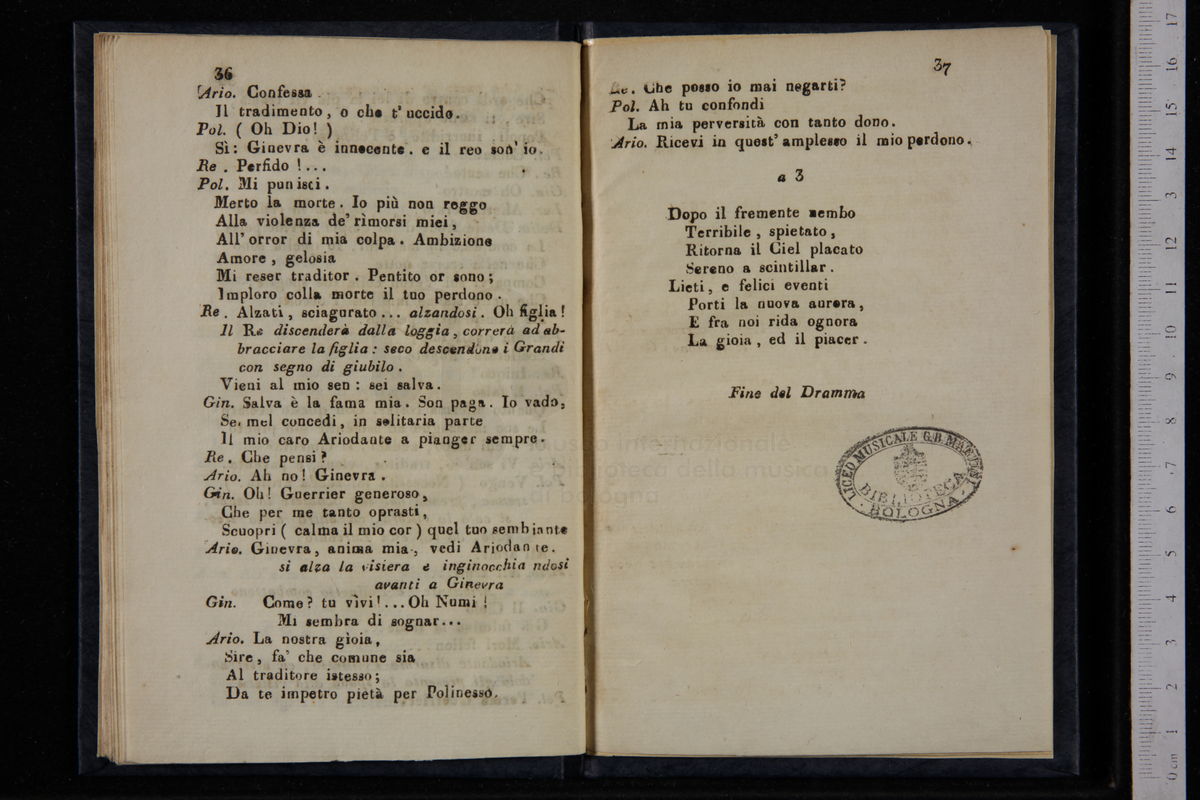 36
Ario. Confessa
Il tradimento, o che t' uccido.
Pol. ( Oh Dio! )
Sì: Ginevra è innocente. e il reo son' io.
Re . Perfido !...
Pol. Mi punisci.
Merto la morte. Io più non reggo
Alla violenza de' rimorsi miei,
All' orror di mia colpa. Ambizione
Amore, gelosia
Mi reser traditor. Pentito or sono;
Imploro colla morte il tuo perdono.
Re . Alzati, sciagurato... alzandosi. Oh figlia!
Il Re discenderà dalla loggia, correrà ad ab-
bracciare la figlia: seco descendono i Grandi
con segno di giubilo.
Vieni al mio sen: sei salva.
Gin. Salva è la fama mia. Son paga. Io vado,
Se, mel concedi, in solitaria parte
Il mio caro Ariodante a pianger sempre.
Re. Che pensi?
Ario. Ah no! Ginevra.
Gin. Oh! Guerrier generoso,
Che per me tanto oprasti,
Scuopri ( calma il mio cor ) quel tuo sembiante
Ario. Ginevra, anima mia, vedi Ariodante.
si alza la visiera e inginocchiandosi
avanti a Ginevra
Gin. Come? tu vivi!...Oh Numi!
Mi sembra di sognar...
Ario. La nostra gioia,
Sire, fa' che comune sia
Al traditore istesso;
Da te impetro pietà per Polinesso.
37
Re. Che posso io mai negarti?
Pol. Ah tu confondi
La mia perversità con tanto dono.
Ario. Ricevi in quest' amplesso il mio perdono.
a 3
Dopo il fremente nembo
Terribile, spietato,
Ritorna il Ciel placato
Sereno a scintillar.
Lieti, e felici eventi
Porti la nuova aurora,
E fra noi rida ognora
La gioia, ed il piacer.
Fine del Dramma
LICEO MUSICALE G.B. MARTINI
BIBLIOTECA
BOLOGNA
museo internazionale
e biblioteca della musica
di bologna
0 cm 1 2 3 4 5 6 7 8 9 10 11 12 13 14 15 16 17